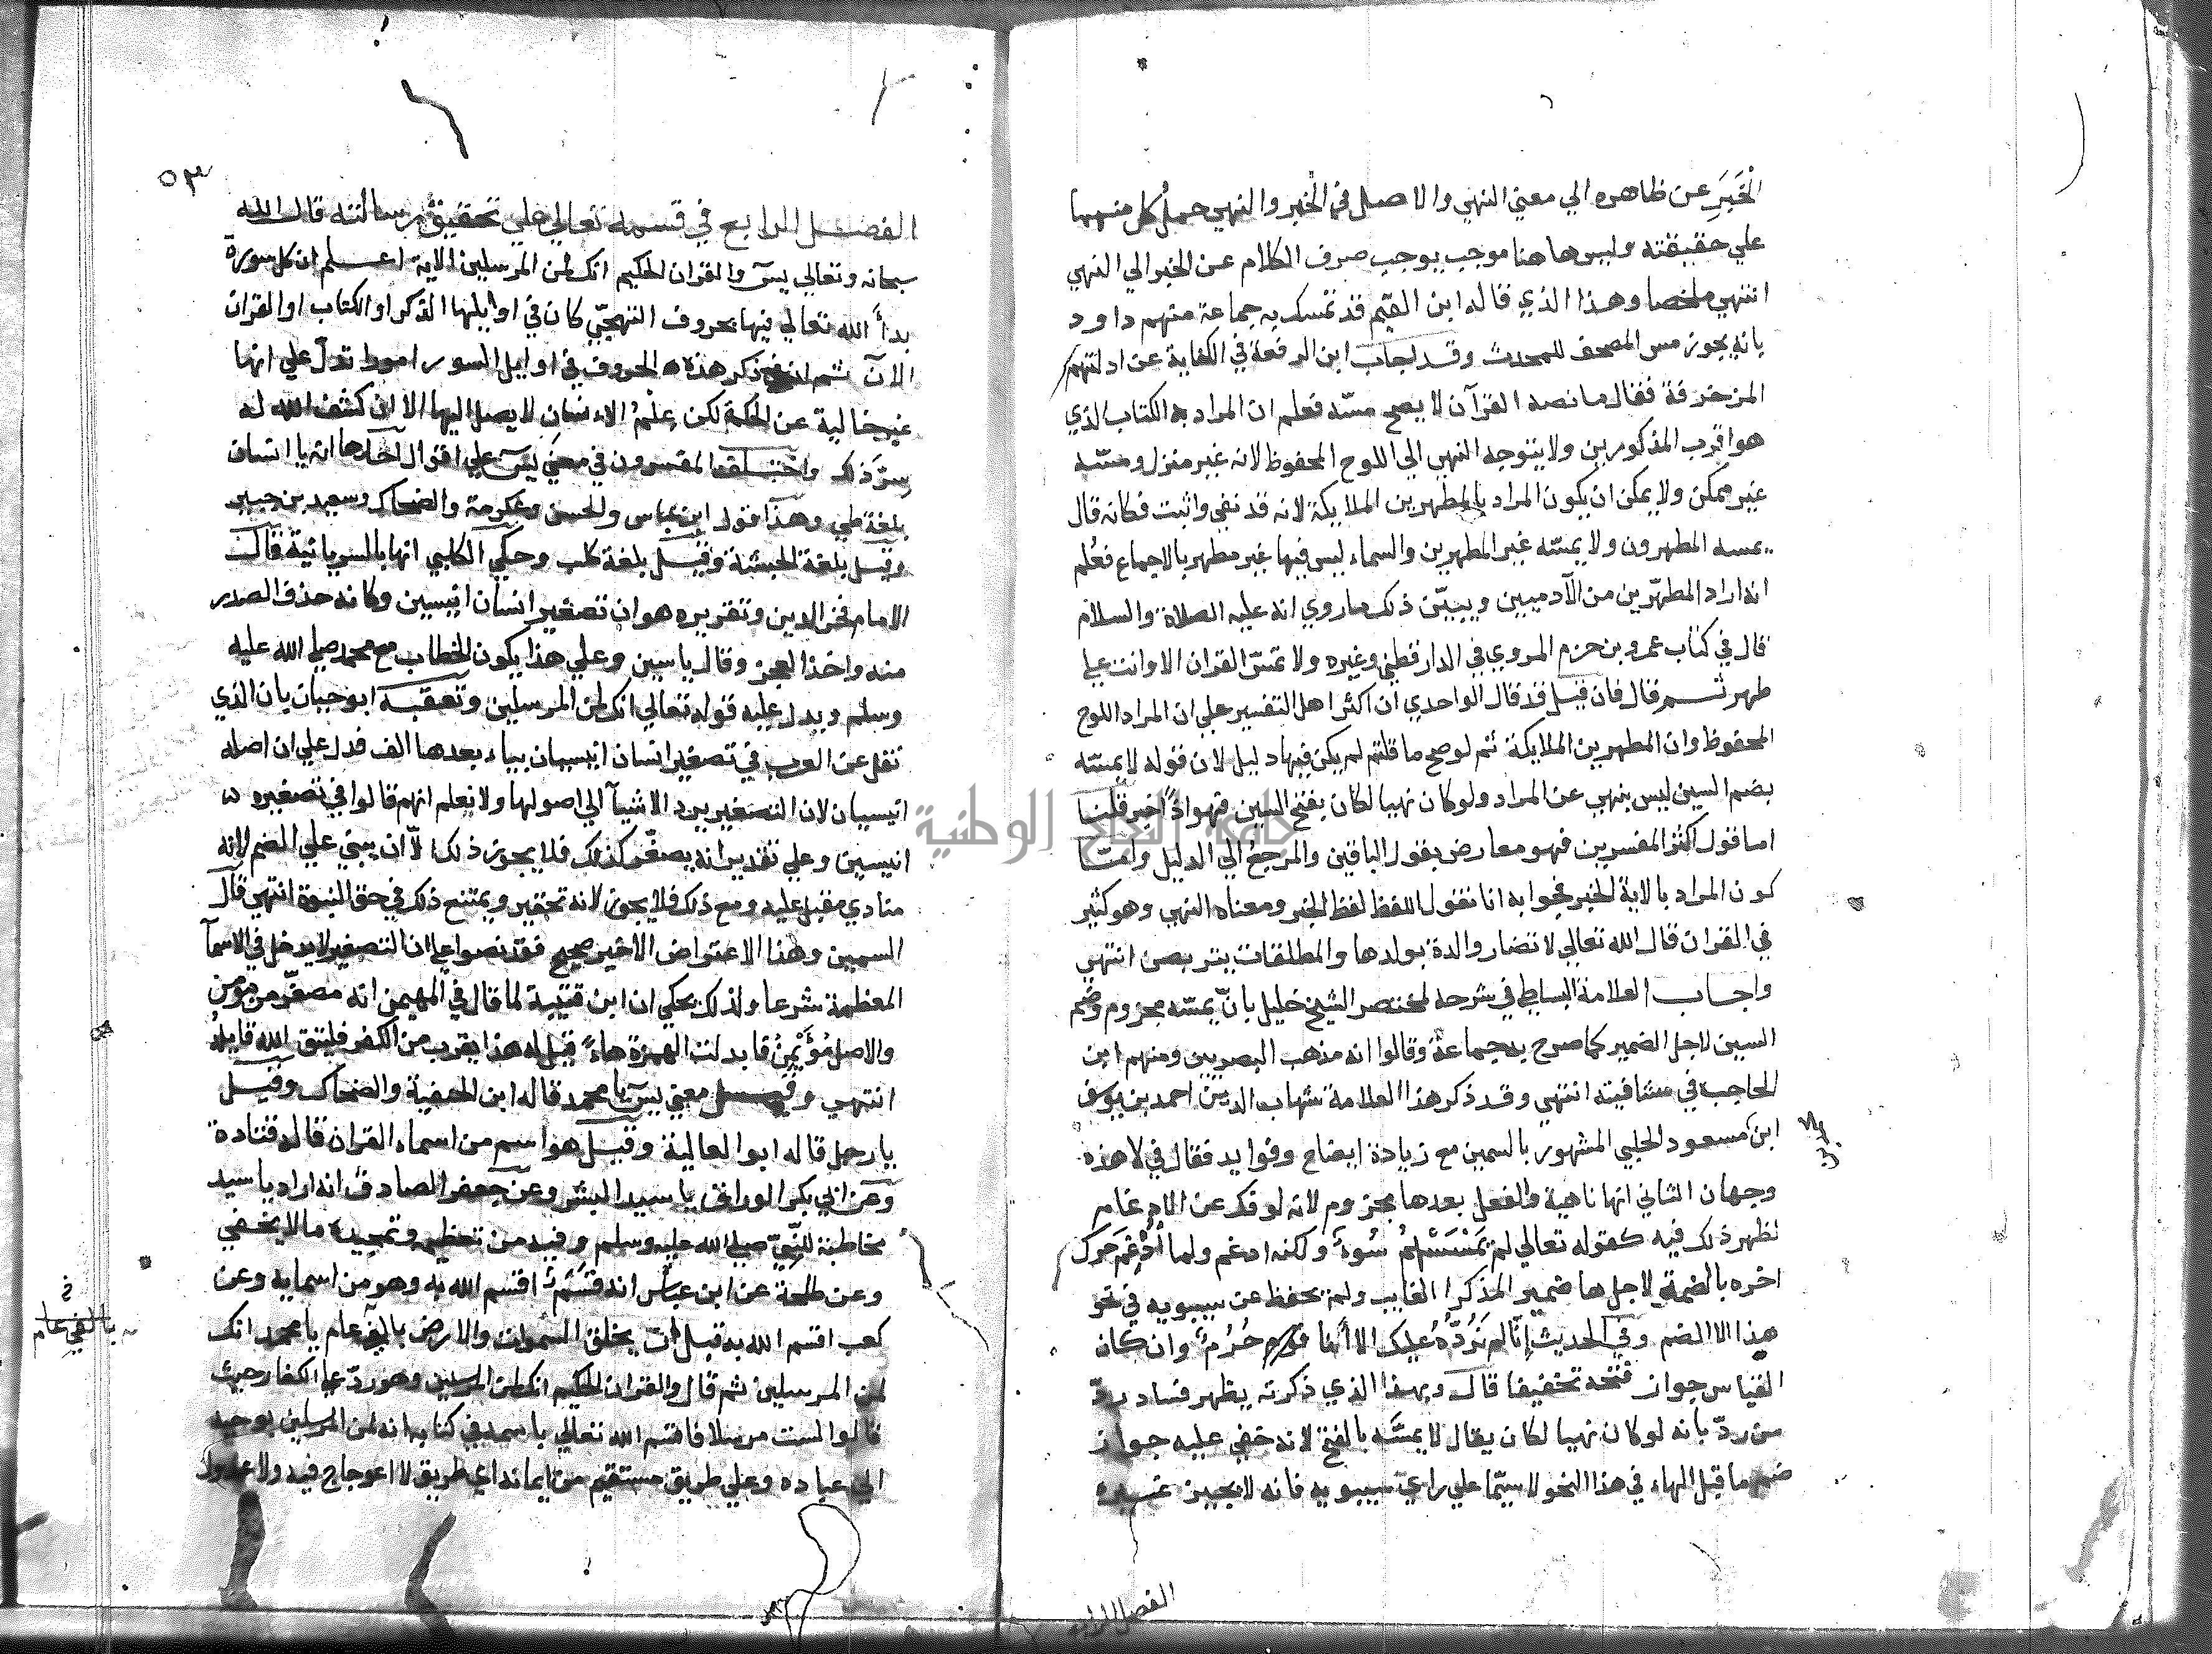 الْخَبَرِ عن ظاهره الي معني النهي والاصل في الخبر والنهي حمل كل منهما
علي حقيقته وليس هاهنا موجب يوجب صرف الكلام عن الخبر الي النهي
انتهي ملخصا وهذا الذي قاله ابن القيم قد تمسك به جماعة منهم داود
بانه يجوز مس المصحف للمحدث وقد اجاب ابن الرفعة في الكفاية عن ادلتهم
المزخرفة فقال ما نصه القرآن لا يصح مسّه فعلم ان المراد به الكتاب الذي
هو اقرب المذكورين ولا يتوجه النهي الي اللوح المحفوظ لانه غير منزل ومسّه
غير ممكن ولا يمكن ان يكون المراد بالمطهرين الملايكة لانه قد نفي واثبت فكانه قال
يمسه المطهرون ولا يمسّه غير المطهرين والسماء ليس فيها غير مطهر بالاجماع فعُلم
انه اراد المطهّرين من الآدميين ويبيّن ذلك ما روي انه عليه الصلاة والسلام
قال في كتاب عمرو بن حزم المروي في الدارقطني وغيره ولا تمسّ القران الا وانت علي
طهر ثم قال فان قيل قد قال الواحدي ان اكثر اهل التفسير علي ان المراد اللوح
المحفوظ وان المطهرين الملايكة ثم لو صح ما قلتم لم يكن فيها دليل لان قوله لا يمسّه
بضم السين ليس بنهي عن المراد ولو كان نهيا لكان بفتح السين فهو اذًا خبر قلنا
اما قول اكثر المفسرين فهو معارض بقول الباقين والمرجع الي الدليل وامّا
كون المراد بالاية الخبر فجوابه انا نقول اللفظ لفظ الخبر ومعناه النهي وهو كثير
في القران قال الله تعالي لا تضار والدة بولدها والمطلقات يتربصن انتهي
واجاب العلامة البساطي في شرحه لمختصر الشيخ خليل بانّ يمسّه مجزوم وضم
السين لاجل الضمير كما صرح به جماعة وقالوا انه مذهب البصريين ومنهم ابن
الحاجب في شافيته انتهي وقد ذكر هذا العلامة شهاب الدين احمد بن يوسف
ابن مسعود الحلبي المشهور بالسمين مع زيادة ايضاح وفوايد فقال في لا هذه
وجهان الثاني انها ناهية والفعل بعدها مجزوم لانه لو فك عن الادغام
لظهر ذلك فيه كقوله تعالي لم يَمْسَسْهُمْ سُوءٌ ولكنه ادغم ولما اُدْغِمَ حرك
اخره بالضمة لاجل هاء ضمير المذكر الغايب ولم يحفظ عن سيبويه في نحو
هذا الا الضم وفي الحديث إنّا لم نَرُدُّهُ عليك الا أنا حُرُمٌ وان كان
القياس جواز فتحه تخفيفا قال وبهذا الذي ذكرته يظهر فساد ردّ
من ردّ بانه لو كان نهيا لكان يقال لا يمسَّه بالفتح لانه خفي عليه جواز
ضم ما قبل الهاء في هذا النحو لا سيّما علي راي سيبويه فانه لا يجيز غيره
الفصل الرابع
٥٣
الفصل الرابع في قسمه تعالي علي تحقيق رسالته قال الله
سبحانه وتعالي يسٓ والقران الحكيم انك لمن المرسلين الاية اعلم ان كل سورة
بدأ الله تعالي فيها بحروف التهجّي كان في اوايلها الذكر او الكتاب او القران
الآن ثم ان في ذكر هذه الحروف في اوايل السور امورا تدلّ علي انها
غير خالية عن الحكمة لكن عِلْمُ الانسان لا يصل اليها الا ان كشف الله له
سرّ ذلك واختلف المفسرون في معني يسٓ علي اقوال احدها انه يا انسان
بلغة طي وهذا قول ابن عباس والحسن وعكرمة والضحاك وسعيد بن جبير
وقيل بلغة الحبشة وقيل بلغة كلب وحكي الكلبي انها بالسريانية قال
الامام فخر الدين وتقريره هو ان تصغير انسان انيسين وكانه حذف الصدر
منه واخذ العجز وقال ياسين وعلي هذا يكون الخطاب مع محمد صلي الله عليه
وسلم ويدل عليه قوله تعالي انك لمن المرسلين وتعقبه ابو حيان بان الذي
نقل عن العرب في تصغير انسان انيسيان بياء بعدها الف فدل علي ان اصله
انيسيان لان التصغير يرد الاشيآ الي اصولها ولا نعلم انهم قالوا في تصغيره
انيسين وعلي تقدير انه يصغّر كذلك فلا يجوز ذلك الّا ان يبني علي الضم لانه
منادي مقبل عليه ومع ذلك فلا يجوز لانه تحقير ويمتنع ذلك في حق النبوة انتهي قال
السمين وهذا الاعتراض الاخير صحيح فقد نصوا علي ان التصغير لا يدخل في الاسمآ
المعظمة شرعا ولذلك يحكي ان ابن قتيبة لما قال في المهيمن انه مصغّر من مؤمن
والاصل مُؤَيْمِنٌ فابدلت الهمزة هاءً قيل له هذا يقرب من الكفر فليتق الله قايله
انتهي وقيل معني يسٓ يا محمد قاله ابن الحنفية والضحاك وقيل
يا رجل قاله ابو العالية وقيل هو اسم من اسماء القران قاله قتادة
وعن ابي بكر الوراق يا سيد البشر وعن جعفر الصادق انه اراد يا سيد
مخاطبة للنّبي صلي الله عليه وسلم وفيه من تعظيمه وتمجيده ما لا يخفي
وعن طلحة عن ابن عباس انه قَسَمٌ اقسم الله به وهو من اسمايه وعن
كعب اقسم الله به قبل ان يخلق السموات والارض بالفي عام يا محمد انك
لمن المرسلين ثم قال والقران الحكيم انك لمن المرسلين وهو ردّ علي الكفار حيث
قالوا لست مرسلا فاقسم الله تعالي باسمه في كتابه انه لمن المرسلين بوحيه
الي عباده وعلي طريق مستقيم من ايمانه اي طريق لا اعوجاج فيه ولا عدول
بالفي عام
جامعة النجاح الوطنية